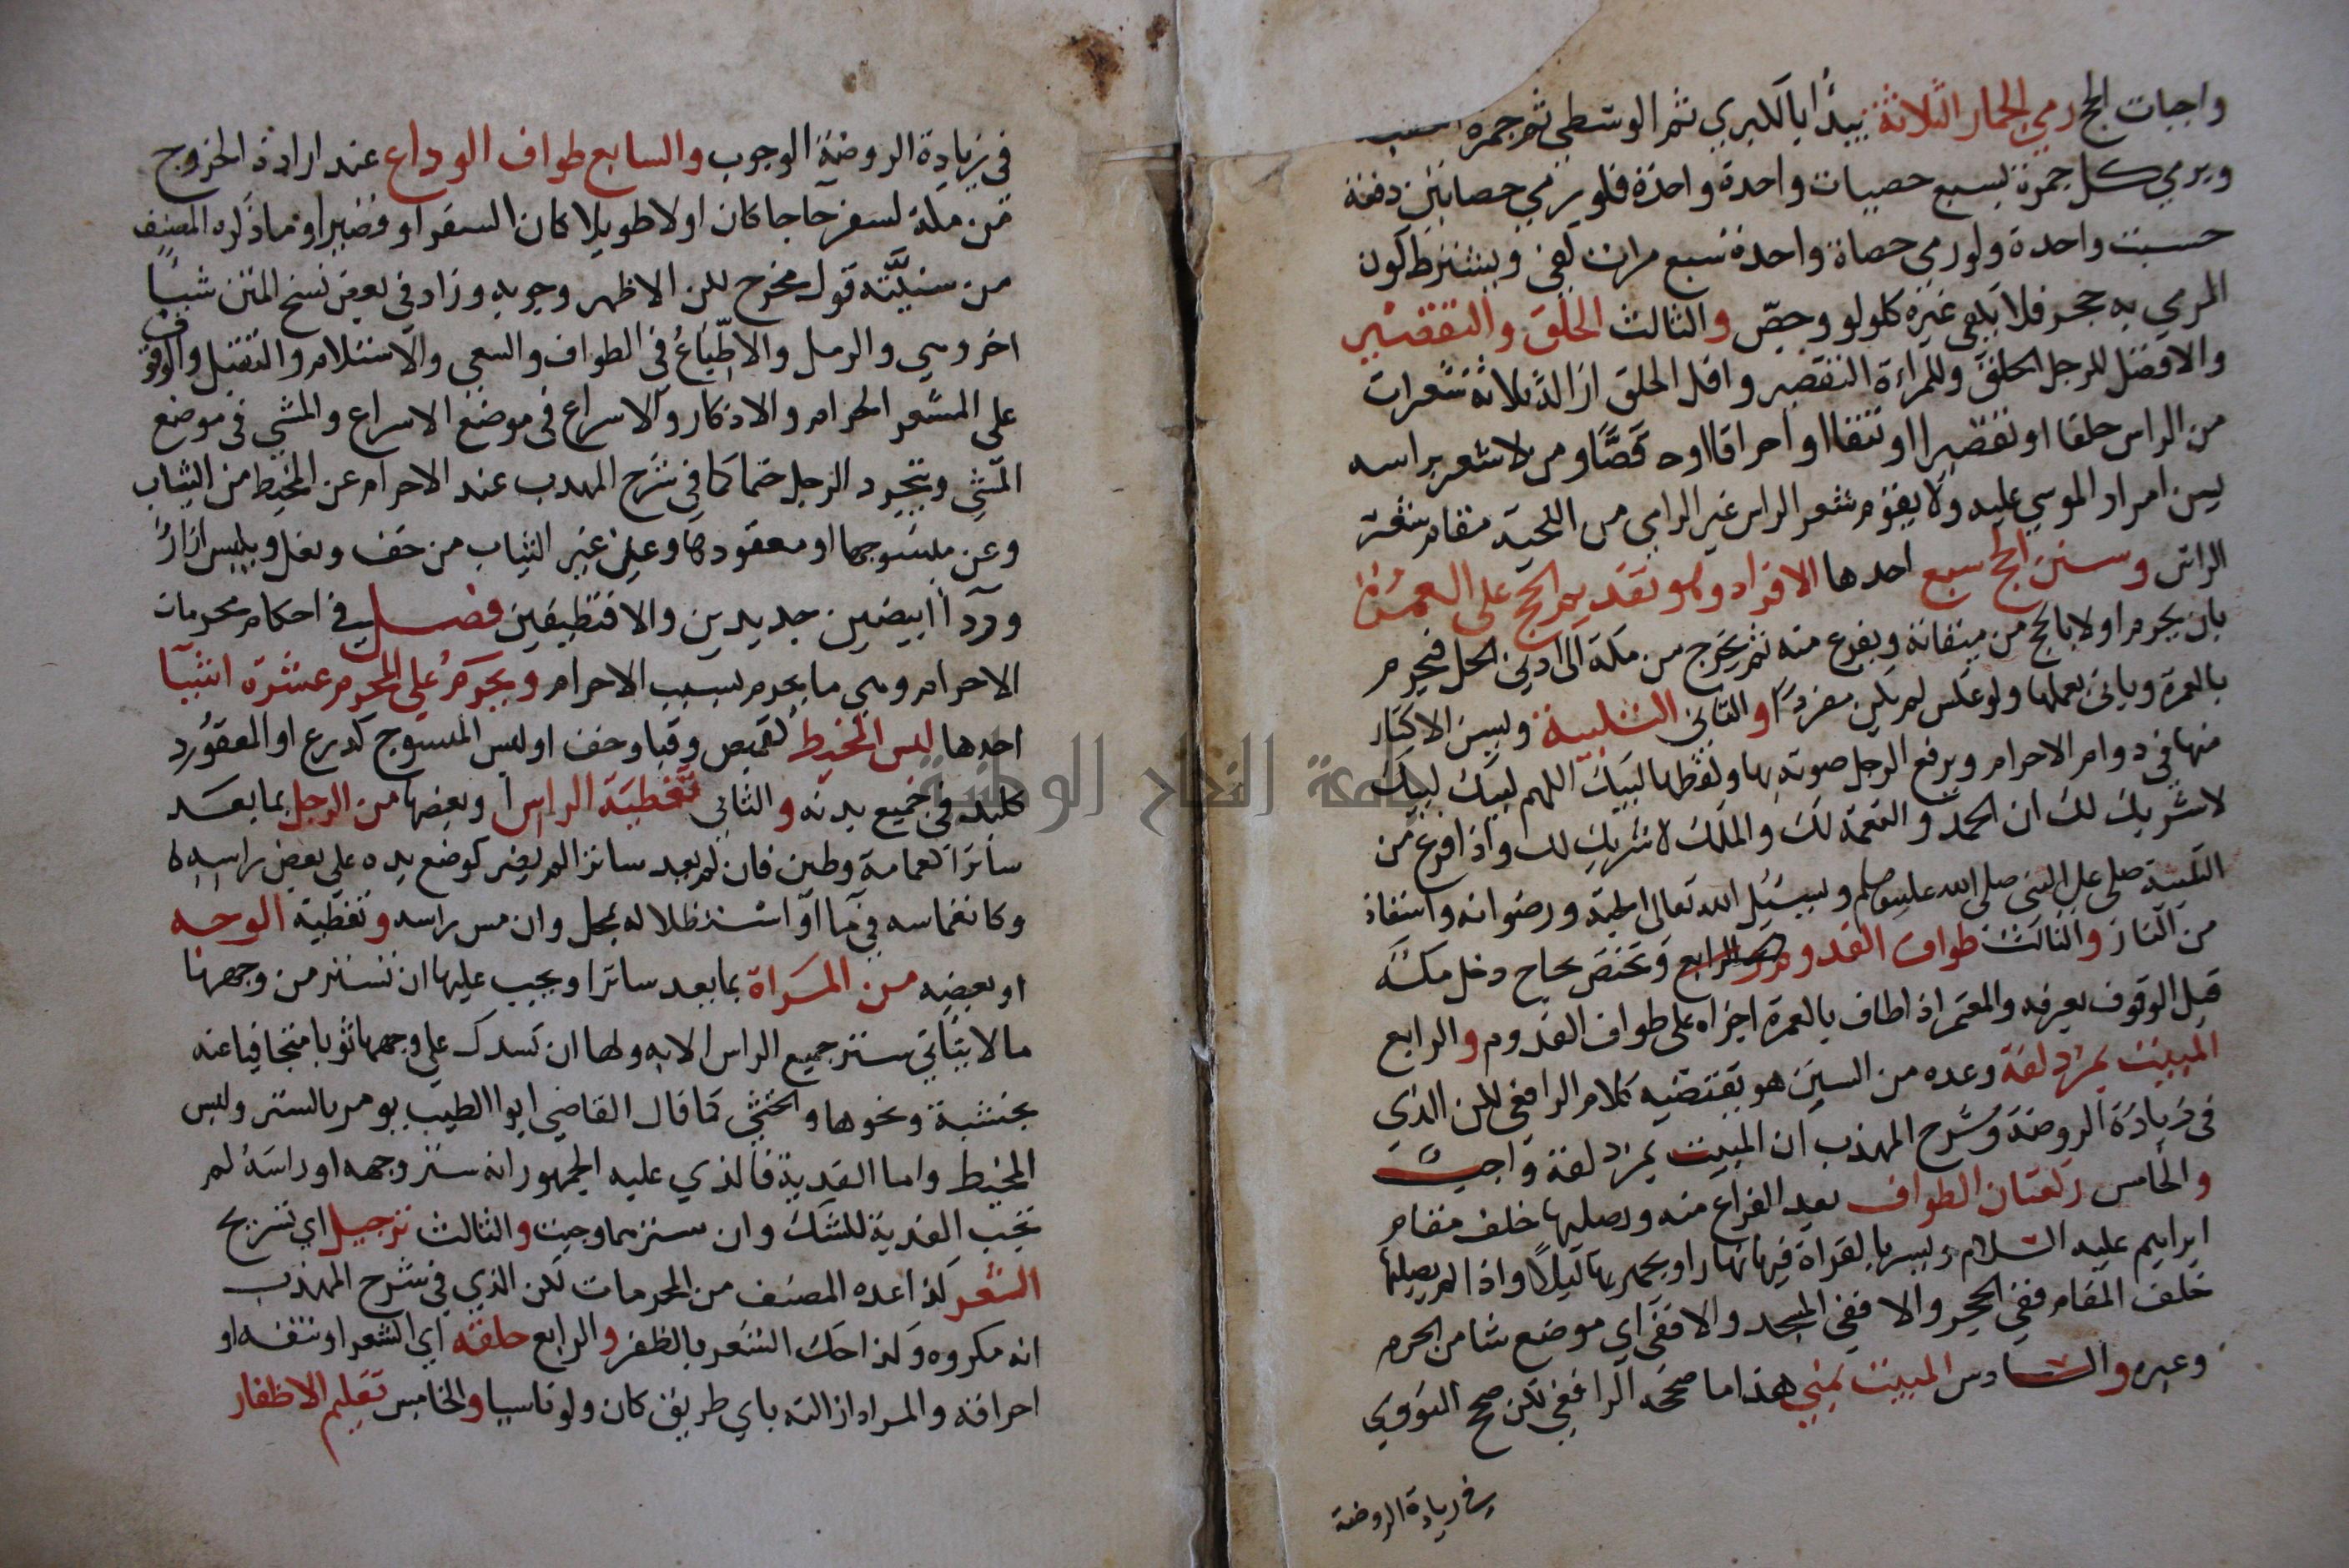 واجبات الحج رمي الجمار الثلاثة يبدأ بالكبري ثم الوسطي ثم جمرة
ويرمي كل جمرة بسبع حصيات واحدة واحدة فلو رمي حصاتين دفعة
حسبت واحدة ولو رمي حصاة واحدة سبع مرات كفي ويشترط كون
المرمي به حجر فلا يكفي غيره كلولو وجص والثالث الحلق والتقصير
والافضل للرجل الحلق وللمراة التقصير واقل الحلق ازالة ثلاثة شعرات
من الراس حلقا او تقصيرا او نتفا او احراقا او قصا ومن لا شعر براسه
يسن امرار الموسي عليه ولا يقوم شعر الراس غير الراس من اللحية مقام شعر
الراس وسنن الحج سبع احدها الافراد وهو تقديم الحج على العمرة
بان يحرم اولا بالحج من ميقاته ويفرغ منه ثم يخرج من مكة الى ادني الحل فيحرم
بالعمرة وياتي بعملها ولو عكس لم يكن مفردا والثاني التلبية ويسن الاكثار
منها في دوام الاحرام ويرفع الرجل صوته بها ولفظها لبيك اللهم لبيك لبيك
لا شريك لك ان الحمد والنعمة لك والملك لا شريك لك واذا فرغ من
التلبية صلى على النبي صلى الله عليه وسلم ويسئل الله تعالى الجنة ورضوانه واستعاذ
من النار والثالث طواف القدوم ويختص بحاج دخل مكة
قبل الوقوف بعرفه والمعتمر اذا طاف بالعمرة اجزاه على طواف القدوم والرابع
المبيت بمزدلفة وعده من السنن هو يقتضيه كلام الرافعي لكن الذي
في زيادة الروضة وشرح المهذب ان المبيت بمزدلفة واجب
والخامس ركعتان الطواف بعد الفراغ منه ويصليها خلف مقام
ابراهيم عليه السلام ويسر بالقراة فيها نهارا ويجهر بها ليلا واذا لم يصليها
خلف المقام ففي الحجر والا ففي المسجد والا ففي اي موضع شا من الحرم
وغيره والسادس المبيت بمني هذا ما صححه الرافعي لكن صحح النووي
في زيادة الروضة
في زيادة الروضة الوجوب والسابع طواف الوداع عند ارادة الخروج
من مكة لسفر حاجا كان او لا طويلا كان السفر او قصيرا وما ذكره المصنف
من سنيته قول مخرج لكن الاظهر وجوبه وزاد في بعض نسخ المتن شيا
اخر وهي والرمل والاطباع في الطواف والسعي والاستلام والتقبيل والوقوف
على المشعر الحرام والاذكار والاسراع في موضع الاسراع والمشي في موضع
المشي ويتجرد الرجل حتما كما في شرح المهدب عند الاحرام عن المخيط من الثياب
وعن منسوجها او معقودها وعن غير الثياب من خف ونعل ويلبس ازارا
وردا ابيضين جديدين والا فنظيفين فصل في احكام محرمات
الاحرام وهي ما يحرم بسبب الاحرام ويحرم على المحرم عشرة اشيا
احدها لبس المخيط كقميص وقبا وخف او لبس المنسوج كدرع او المعقود
كلبد في جميع بدنه والثاني تغطية الراس او بعضها من الرجل بما يعد
ساترا كعمامة وطين فان لم يعد ساترا لم يضر كوضع يده على بعض راسه
وكانغماسه في ما او استظلاله بمحمل وان مس راسه وتغطية الوجه
او بعضه من المراة بما يعد ساترا ويجب عليها ان تستر من وجهها
ما لا يتاتي ستر جميع الراس الا به ولها ان تسدل على وجهها ثوبا متجافيا عنه
بخشبة ونحوها والخنثى كما قال القاضي ابوا الطيب يومر بالستر ولبس
المخيط واما الفدية فالذي عليه الجمهور انه ستر وجهه او راسه لم
تجب الفدية للشك وان سترهما وجبت والثالث ترجيل اي تسريح
الشعر كذا عده المصنف من المحرمات لكن الذي في شرح المهذب
انه مكروه وكذا حك الشعر بالظفر والرابع حلقه اي الشعر او نتفه او
احراقه والمراد ازالته باي طريق كان ولو ناسيا والخامس تقليم الاظفار
جامعة النجاح الوطنية